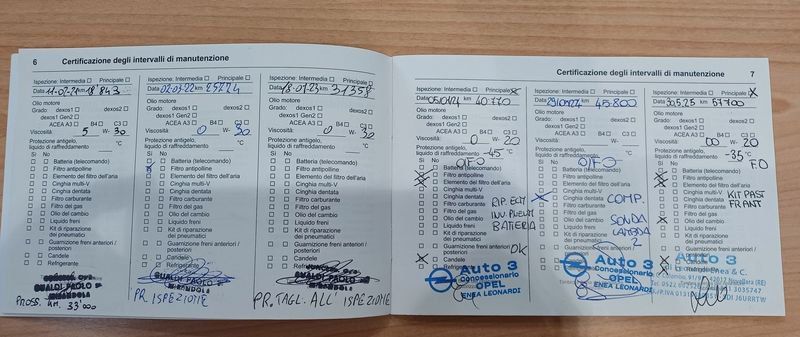 6 Certificazione degli intervalli di manutenzione
Ispezione: Intermedia ☐ Principale ☐
Data 11-02-21 km 18 843
Olio motore
Grado: dexos1 ☐ dexos2 ☐
dexos1 Gen2 ☐
ACEA A3 ☐ B4 ☐ C3 ☐
Viscosità: 5 W- 30
Protezione antigelo,
liquido di raffreddamento: °C
Sì No
☐ ☐ Batteria (telecomando)
☐ ☐ Filtro antipolline
☐ ☐ Elemento del filtro dell'aria
☐ ☐ Cinghia multi-V
☐ ☐ Cinghia dentata
☐ ☐ Filtro carburante
☐ ☐ Filtro del gas
☐ ☐ Olio del cambio
☐ ☐ Liquido freni
☐ ☐ Kit di riparazione
dei pneumatici
☐ ☐ Guarnizione freni anteriori /
posteriori
☐ ☐ Candele
☐ ☐ Refrigerante
BUALDI PAOLO
MIRANDOLA
PROSS. KM. 33'000
Ispezione: Intermedia ☐ Principale ☐
Data 02-03-22 km 25274
Olio motore
Grado: dexos1 ☐ dexos2 ☐
dexos1 Gen2 ☐
ACEA A3 ☐ B4 ☐ C3 ☐
Viscosità: 0 W- 30
Protezione antigelo,
liquido di raffreddamento: °C
Sì No
Batteria (telecomando)
Filtro antipolline
Elemento del filtro dell'aria
Cinghia multi-V
Cinghia dentata
Filtro carburante
Filtro del gas
Olio del cambio
Liquido freni
Kit di riparazione
dei pneumatici
Guarnizione freni anteriori /
posteriori
Candele
Refrigerante
BUALDI PAOLO
MIRANDOLA
PR. ISPEZIONE
Ispezione: Intermedia ☐ Principale ☐
Data 18-07-23 km 31358
Olio motore
Grado: dexos1 ☐ dexos2 ☐
dexos1 Gen2 ☐
ACEA A3 ☐ B4 ☐ C3 ☐
Viscosità: 0 W- 30
Protezione antigelo,
liquido di raffreddamento: °C
Sì No
Batteria (telecomando)
Filtro antipolline
Elemento del filtro dell'aria
Cinghia multi-V
Cinghia dentata
Filtro carburante
Filtro del gas
Olio del cambio
Liquido freni
Kit di riparazione
dei pneumatici
Guarnizione freni anteriori /
posteriori
Candele
Refrigerante
BUALDI PAOLO
MIRANDOLA
PR. TAGL. ALL' ISPEZIONE
Certificazione degli intervalli di manutenzione 7
Ispezione: Intermedia ☐ Principale X
Data 05/01/24 km 40770
Olio motore
Grado: dexos1 ☐ dexos2 ☐
dexos1 Gen2 ☐
ACEA A3 ☐ B4 ☐ C3 ☐
Viscosità: 0 W- 20
Protezione antigelo,
liquido di raffreddamento: -45 °C
Sì No O/FO
Batteria (telecomando)
Filtro antipolline
Elemento del filtro dell'aria
Cinghia multi-V
Cinghia dentata
Filtro carburante
Filtro del gas
Olio del cambio
Liquido freni
Kit di riparazione
dei pneumatici
Guarnizione freni anteriori /
posteriori OK
Candele
Refrigerante
INV PNEUM
BATTERIA
Auto 3
Concessionario
OPEL
ENEA LEONARDI
Ispezione: Intermedia ☐ Principale ☐
km 45.800
Olio motore
Grado: dexos1 ☐ dexos2 ☐
dexos1 Gen2 ☐
ACEA A3 ☐ B4 ☐ C3 ☐
Viscosità: 0 W- 20
Protezione antigelo,
liquido di raffreddamento: °C
Sì No O/FO
Batteria (telecomando)
Filtro antipolline
Elemento del filtro dell'aria
Cinghia multi-V
Cinghia dentata COMP.
Filtro carburante
Filtro del gas
Olio del cambio SONDA
Liquido freni LAMBDA
Kit di riparazione 2
dei pneumatici
Guarnizione freni anteriori /
posteriori
Candele
Refrigerante
Auto 3
Concessionario
OPEL
ENEA LEONARDI
Ispezione: Intermedia ☐ Principale X
Data 30.5.25 km 57700
Olio motore
Grado: dexos1 ☐ dexos2 ☐
dexos1 Gen2 ☐
ACEA A3 ☐ B4 ☐ C3 ☐
Viscosità: 00 W- 20
Protezione antigelo,
liquido di raffreddamento: -35 °C
Sì No FO
Batteria (telecomando)
Filtro antipolline
Elemento del filtro dell'aria
Cinghia multi-V KIT PAST
Cinghia dentata FRANT
Filtro carburante
Filtro del gas
Olio del cambio
Liquido freni
Kit di riparazione
dei pneumatici
Guarnizione freni anteriori /
posteriori
Candele
Refrigerante
Auto 3
Enea & C.
Novellara (RE)